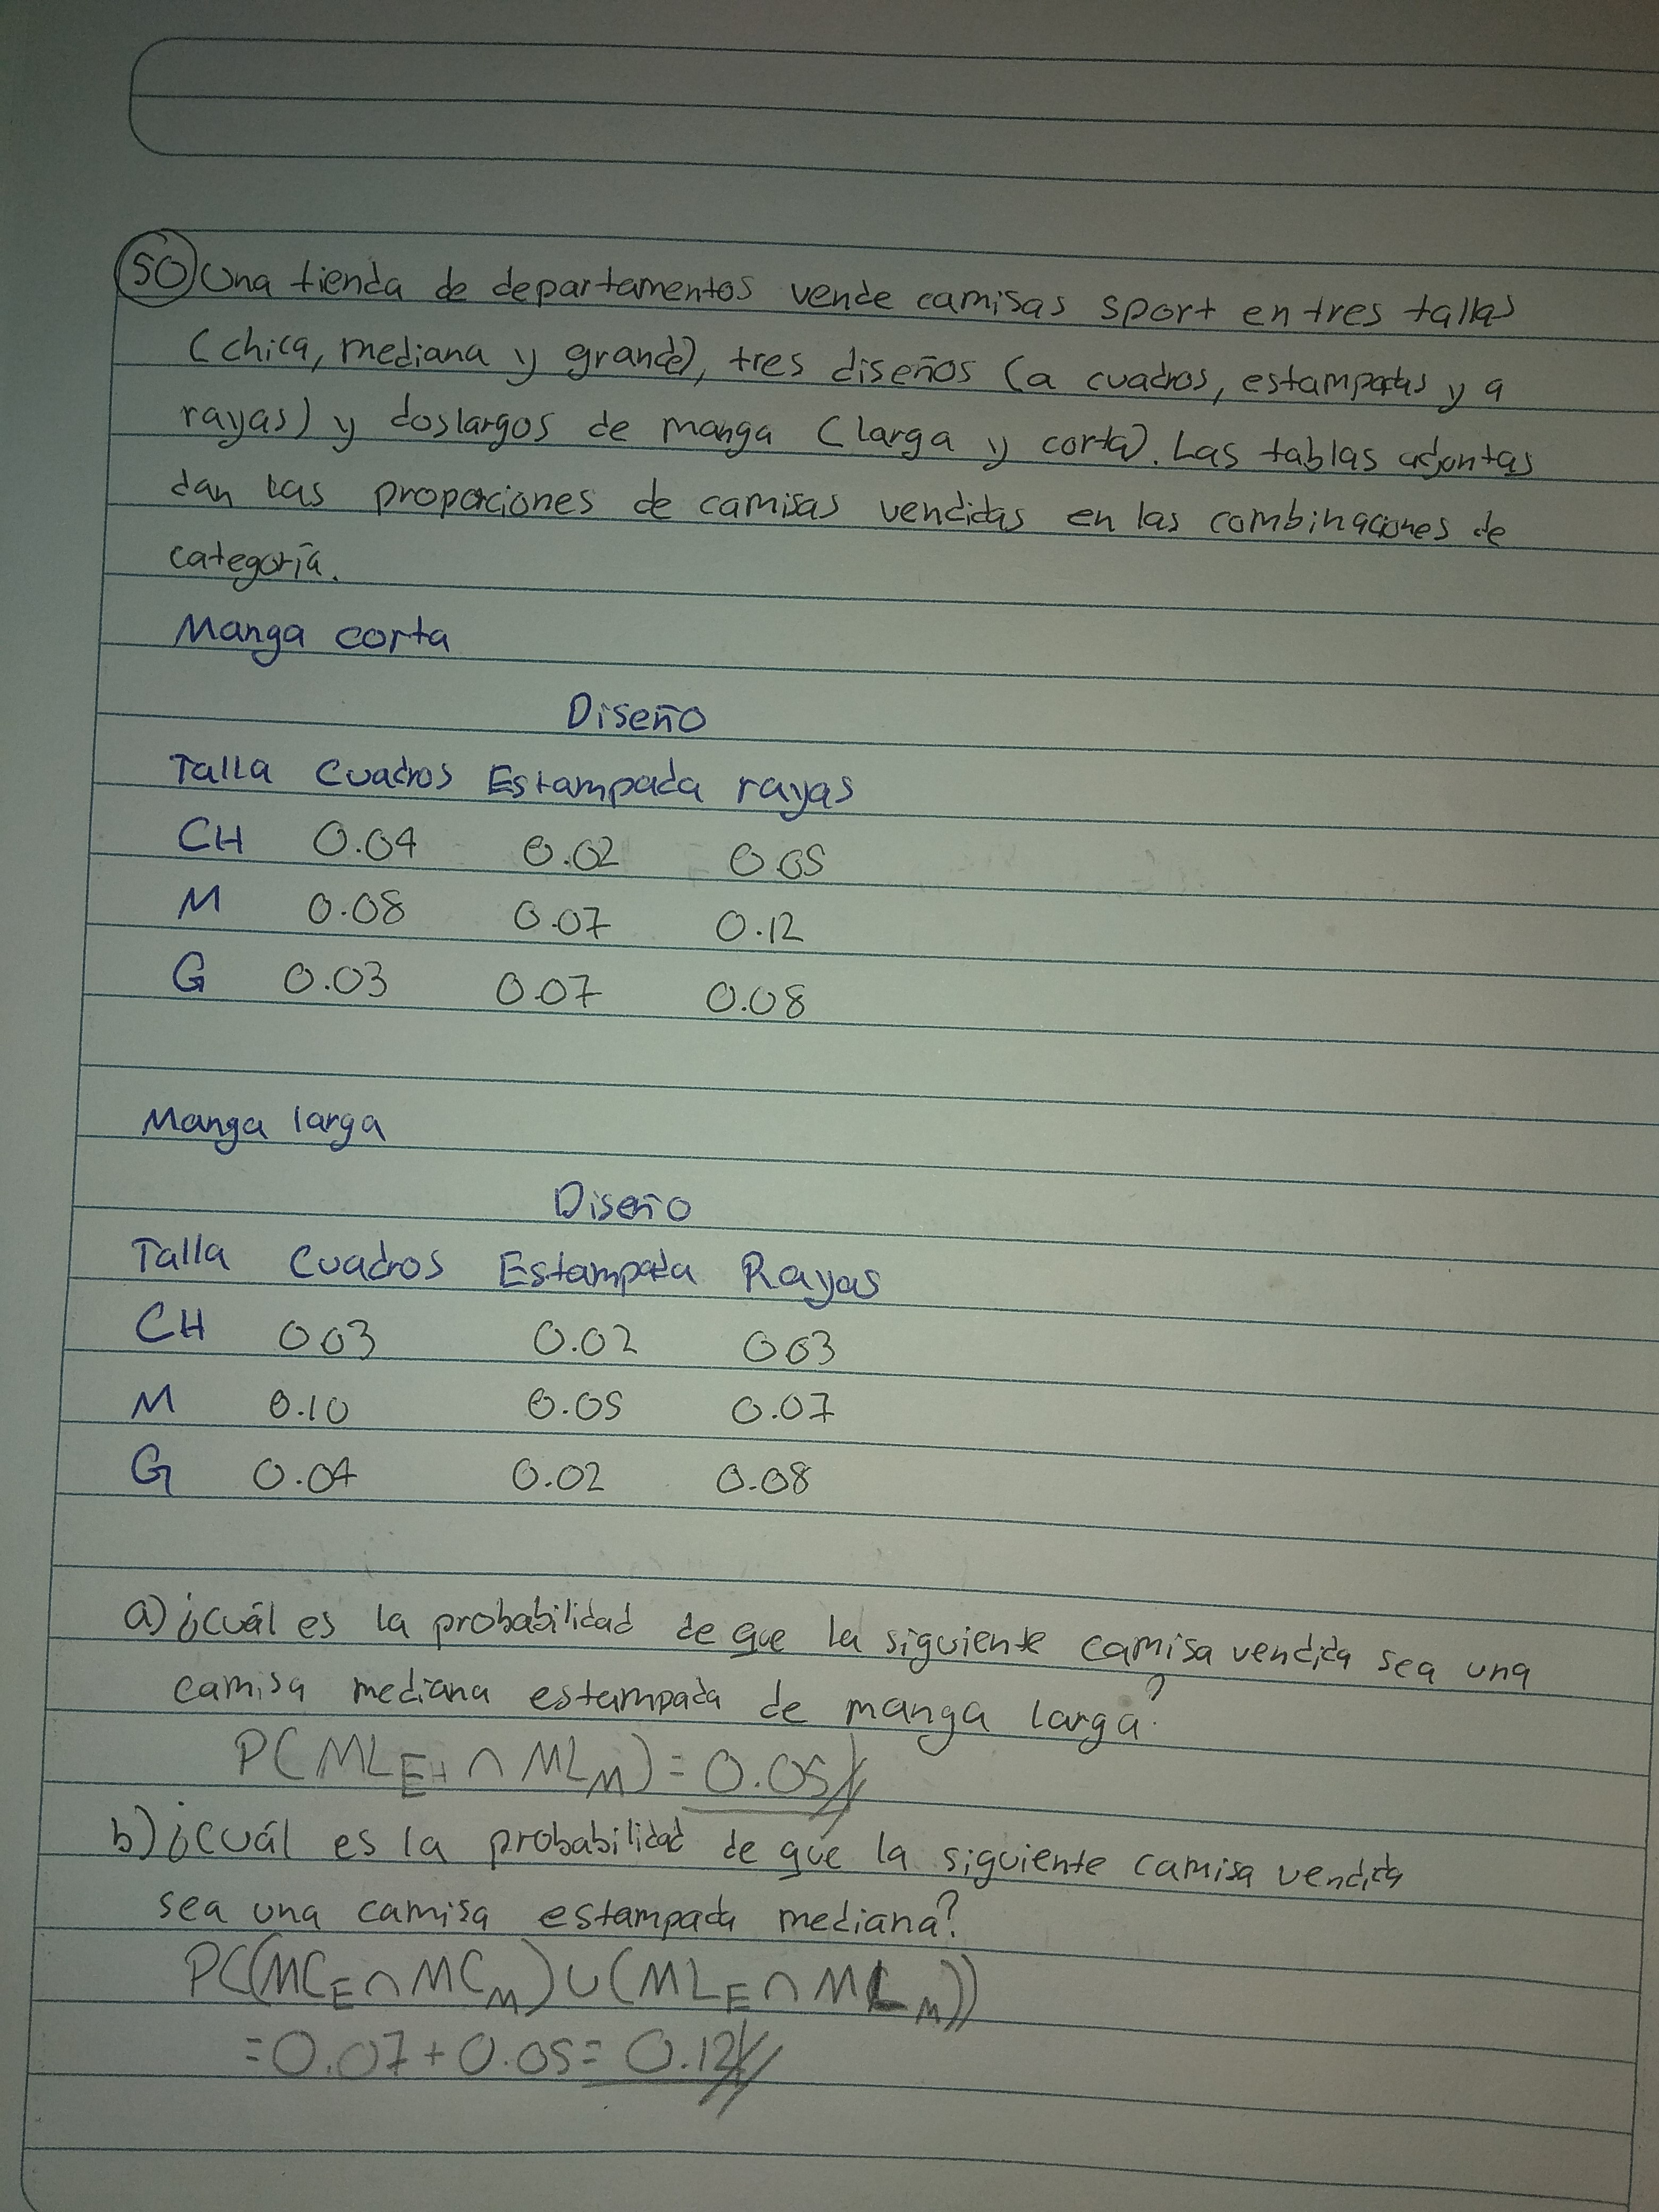 50 Una tienda de departamentos vende camisas sport en tres tallas
(chica, mediana y grande), tres diseños (a cuadros, estampadas y a
rayas) y dos largos de manga (larga y corta). Las tablas adjuntas
dan las proporciones de camisas vendidas en las combinaciones de
categoría.
Manga corta
Diseño
Talla Cuadros Estampada rayas
CH 0.04 0.02 0.05
M 0.08 0.07 0.12
G 0.03 0.07 0.08
Manga larga
Diseño
Talla Cuadros Estampada Rayas
CH 0.03 0.02 0.03
M 0.10 0.05 0.07
G 0.04 0.02 0.08
a) ¿Cuál es la probabilidad de que la siguiente camisa vendida sea una
camisa mediana estampada de manga larga?
P(ML_E ∩ ML_M) = 0.05
b) ¿Cuál es la probabilidad de que la siguiente camisa vendida
sea una camisa estampada mediana?
P((MC_E ∩ MC_M) ∪ (ML_E ∩ ML_M))
= 0.07 + 0.05 = 0.12